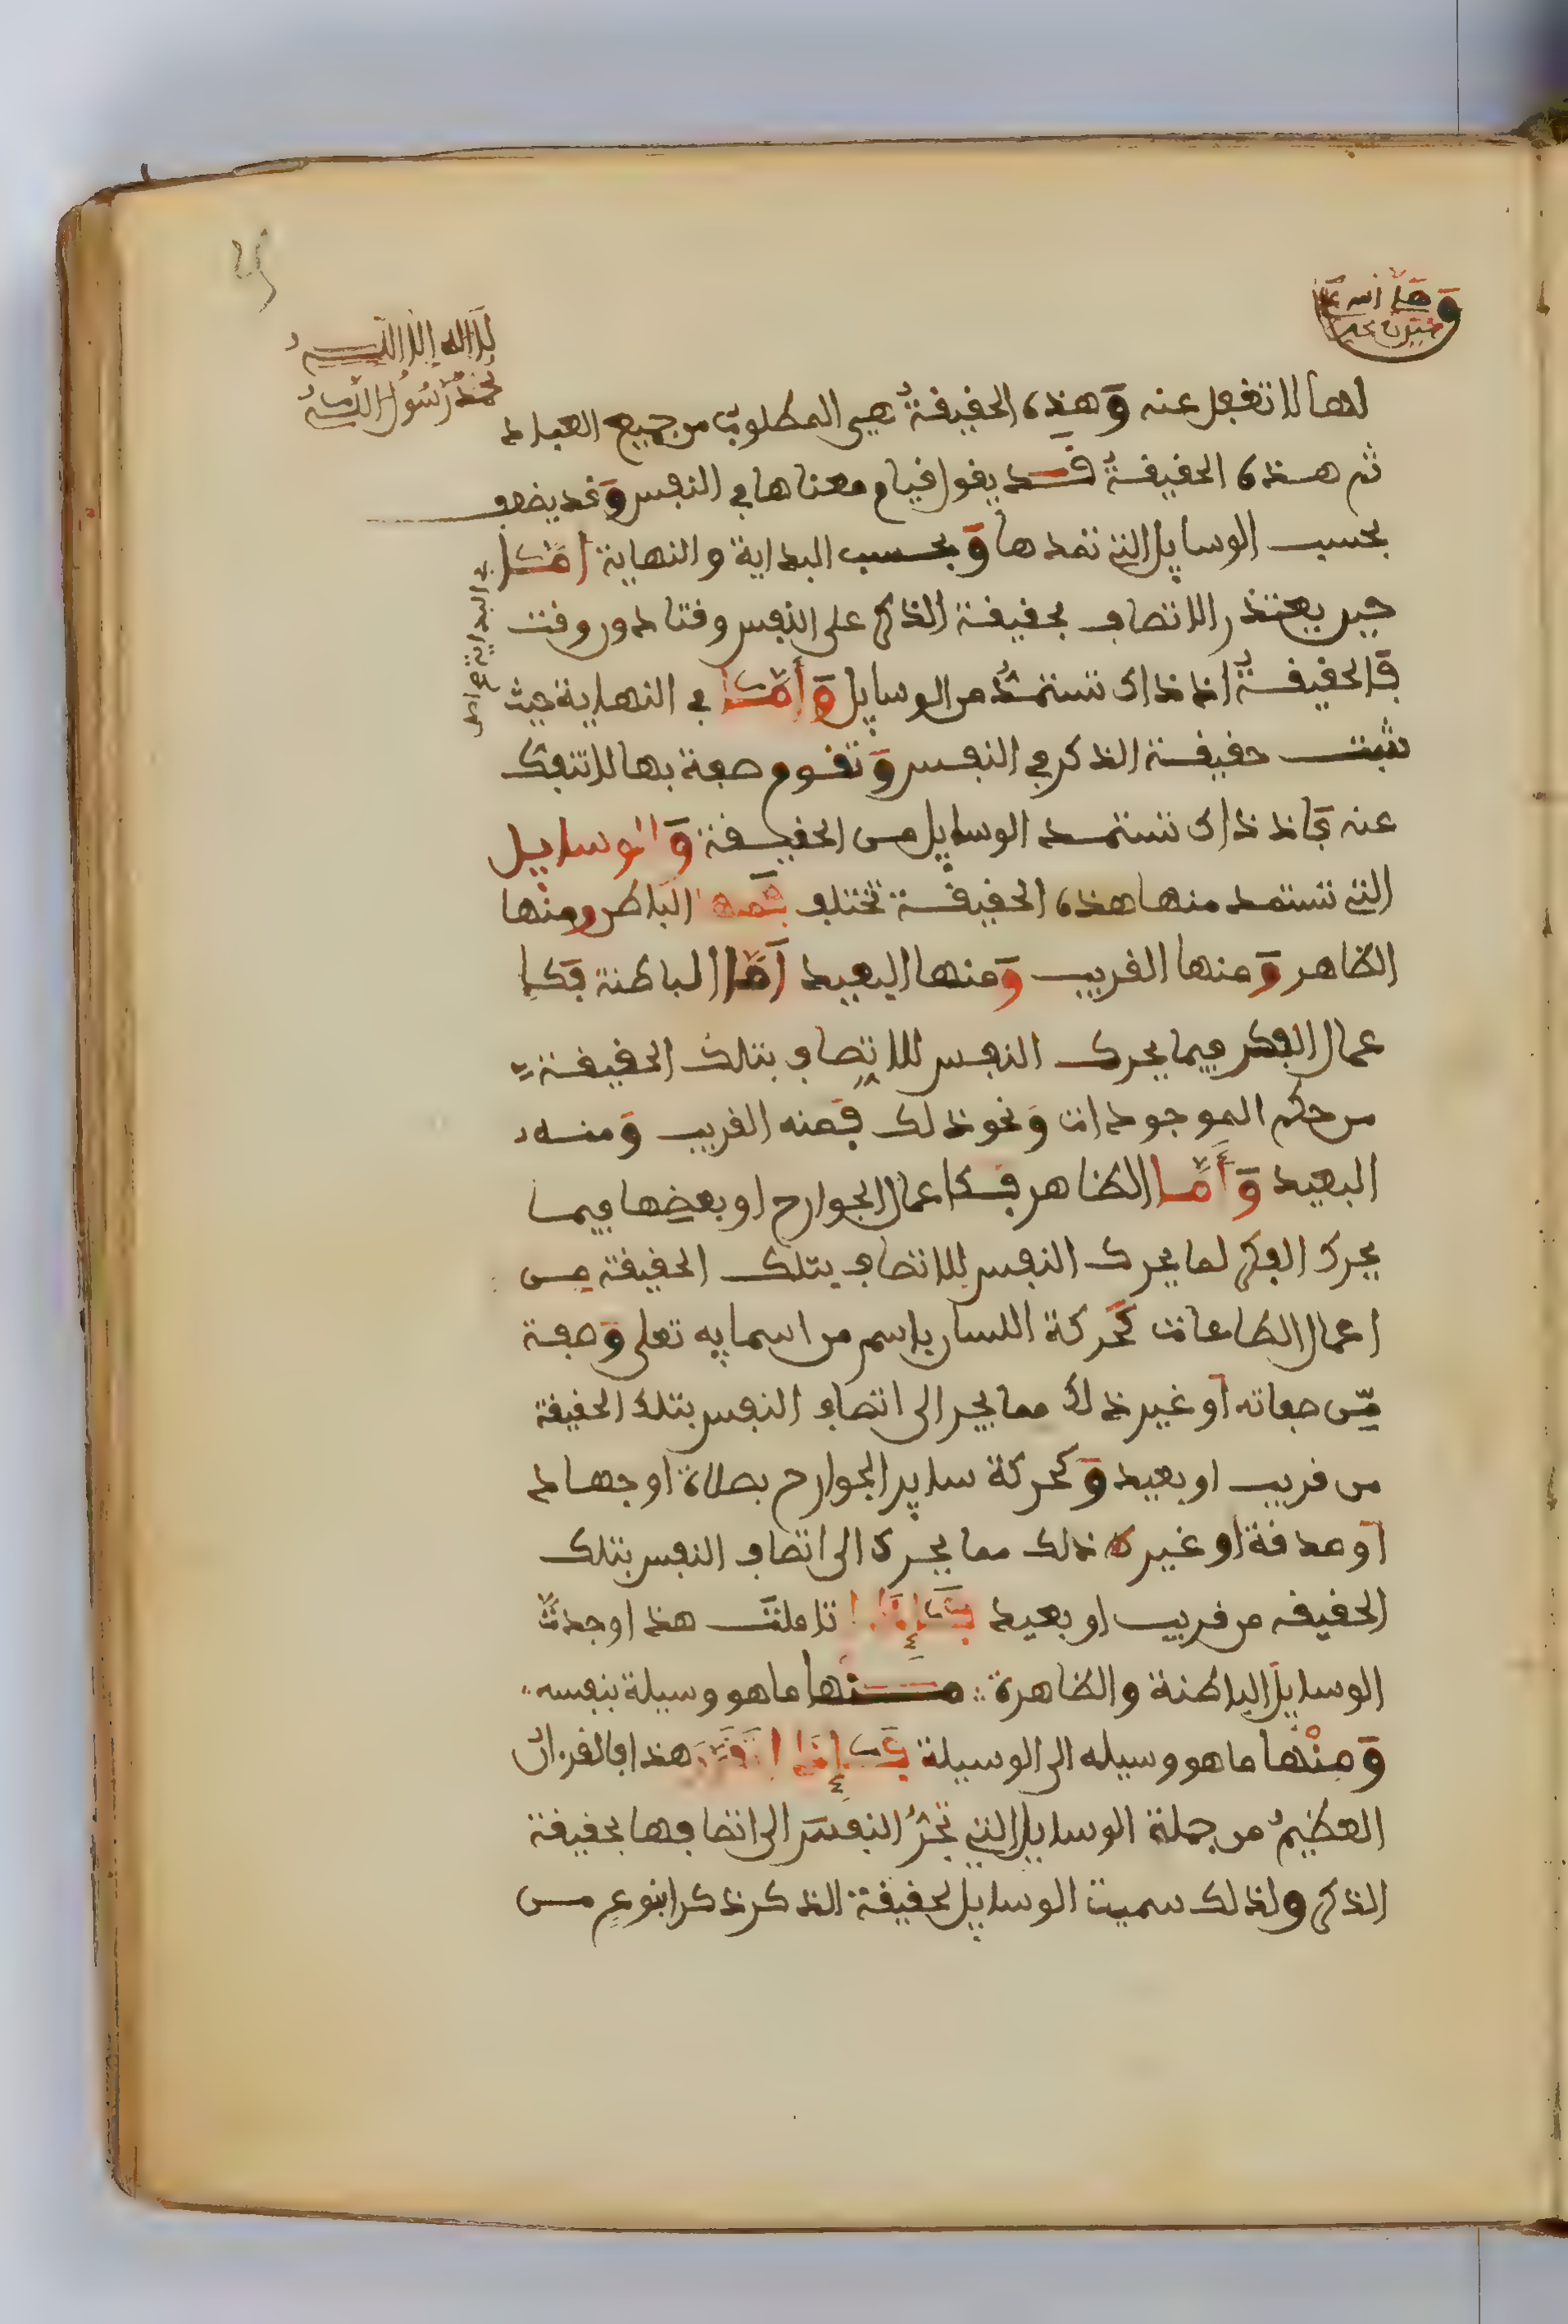 لا اله الا الله
محمد رسول الله
لها لا تغفل عنه وهذه الحقيقة هي المطلوب من جميع العباد
ثم هذه الحقيقة قد يقوا قيام معناها في النفس وقد يضعف
بحسب الوسايل التي تمدها وبحسب البداية والنهاية اما
حين يعتذر الاتصاف بحقيقة الذكر على النفس وقتا دون وقت
فالحقيقة اذ ذاك تستمد من الوسايل وأما في النهاية حيث
تثبت حقيقة الذكر في النفس وتقوم صفة بها لا تنفك
عنه فاذ ذاك تستمد الوسايل من الحقيقة والوسايل
التي تستمد منها هذه الحقيقة تختلف فمنها الباطن ومنها
الظاهر ومنها القريب ومنها البعيد أما الباطنة فكا
عمال الفكر فيما يحرك النفس للاتصاف بتلك الحقيقة
من حكم الموجودات ونحو ذلك فمنه القريب ومنه
البعيد وأما الظاهر فكاعمال الجوارح او بعضها فيما
يحرك الفكر لما يحرك النفس للاتصاف بتلك الحقيقة من
اعمال الطاعات كحركة اللسان باسم من اسمايه تعلى وصفة
من صفاته أو غير ذلك مما يجر الى اتصاف النفس بتلك الحقيقة
من قريب او بعيد وكحركة ساير الجوارح بصلاة او جهاد
أو صدقة او غير ذلك مما يجر الى اتصاف النفس بتلك
الحقيقه من قريب او بعيد فإذا تاملت هذا وجدت
الوسايل الباطنة والظاهرة منها ما هو وسيلة بنفسه
ومنها ما هو وسيله الى الوسيلة فإذا تقرر هذا فالقرءان
العظيم من جملة الوسايل التي تجر النفس الى اتصافها بحقيقة
الذكر ولذلك سميت الوسايل لحقيقة الذكر ذكرا بنوع من